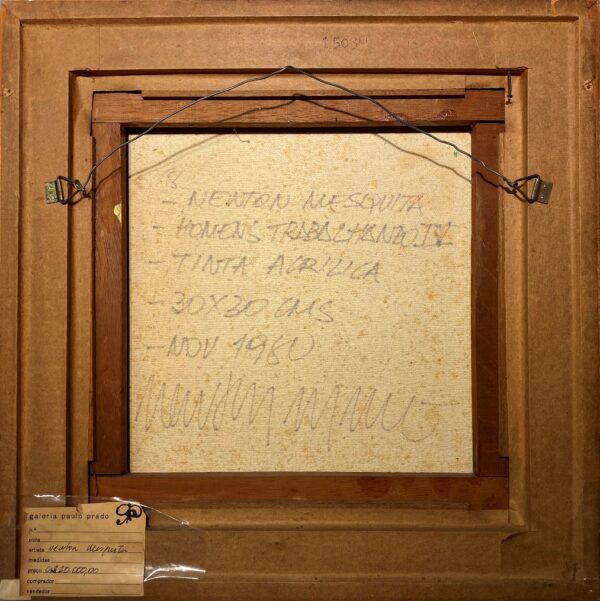 15030
8
- NEWTON MESQUITA
- HOMENS TRABALHANDO IV
- TINTA ACRÍLICA
- 30X30 CMS
- NOV 1980
galeria paulo prado
n.º
obra
artista newton mesquita
medidas
preço 60.000,00
comprador
vendedor